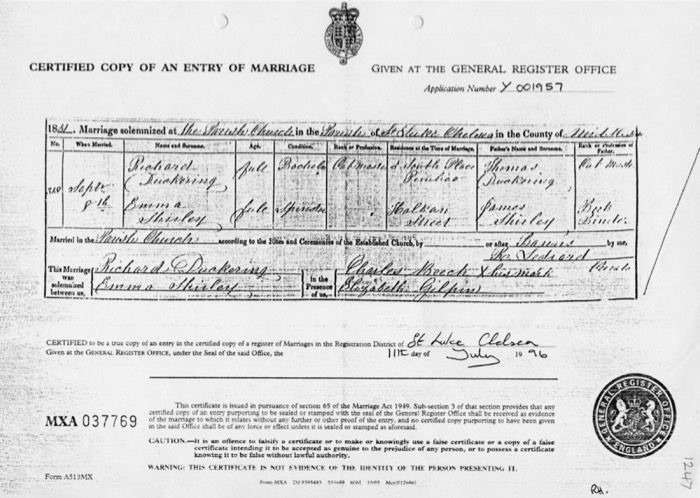 CERTIFIED COPY OF AN ENTRY OF MARRIAGE
GIVEN AT THE GENERAL REGISTER OFFICE
Application Number Y 001957
Marriage solemnized at the Parish Church in the Parish of St Luke Chelsea in the County of Middlesex
No. When Married. Name and Surname. Age. Condition. Rank or Profession. Residence at the Time of Marriage. Father's Name and Surname. Rank or Profession of Father.
Richard Full South Place Thomas
Septr Duckering Pimlico Duckering
8th Emma Full Spinster Halkin James Book
Shirley Street Shirley Binder
Married in the Parish Church according to the Rites and Ceremonies of the Established Church, by or after Banns by me,
This Marriage was solemnized between us, Richard Duckering in the Presence of us, Charles Beech X his mark
Emma Shirley Elizabeth Gilpin
CERTIFIED to be a true copy of an entry in the certified copy of a register of Marriages in the Registration District of St Luke Chelsea
Given at the GENERAL REGISTER OFFICE, under the Seal of the said Office, the 11th day of July 1996
MXA 037769
This certificate is issued in pursuance of section 65 of the Marriage Act 1949. Sub-section 3 of that section provides that any
certified copy of an entry purporting to be sealed or stamped with the seal of the General Register Office shall be received as evidence
of the marriage to which it relates without any further or other proof of the entry, and no certified copy purporting to have been given
in the said Office shall be of any force or effect unless it is sealed or stamped as aforesaid.
CAUTION.—It is an offence to falsify a certificate or to make or knowingly use a false certificate or a copy of a false
certificate intending it to be accepted as genuine to the prejudice of any person, or to possess a certificate
knowing it to be false without lawful authority.
WARNING: THIS CERTIFICATE IS NOT EVIDENCE OF THE IDENTITY OF THE PERSON PRESENTING IT.
Form A513MX
GENERAL REGISTER OFFICE ENGLAND
1247